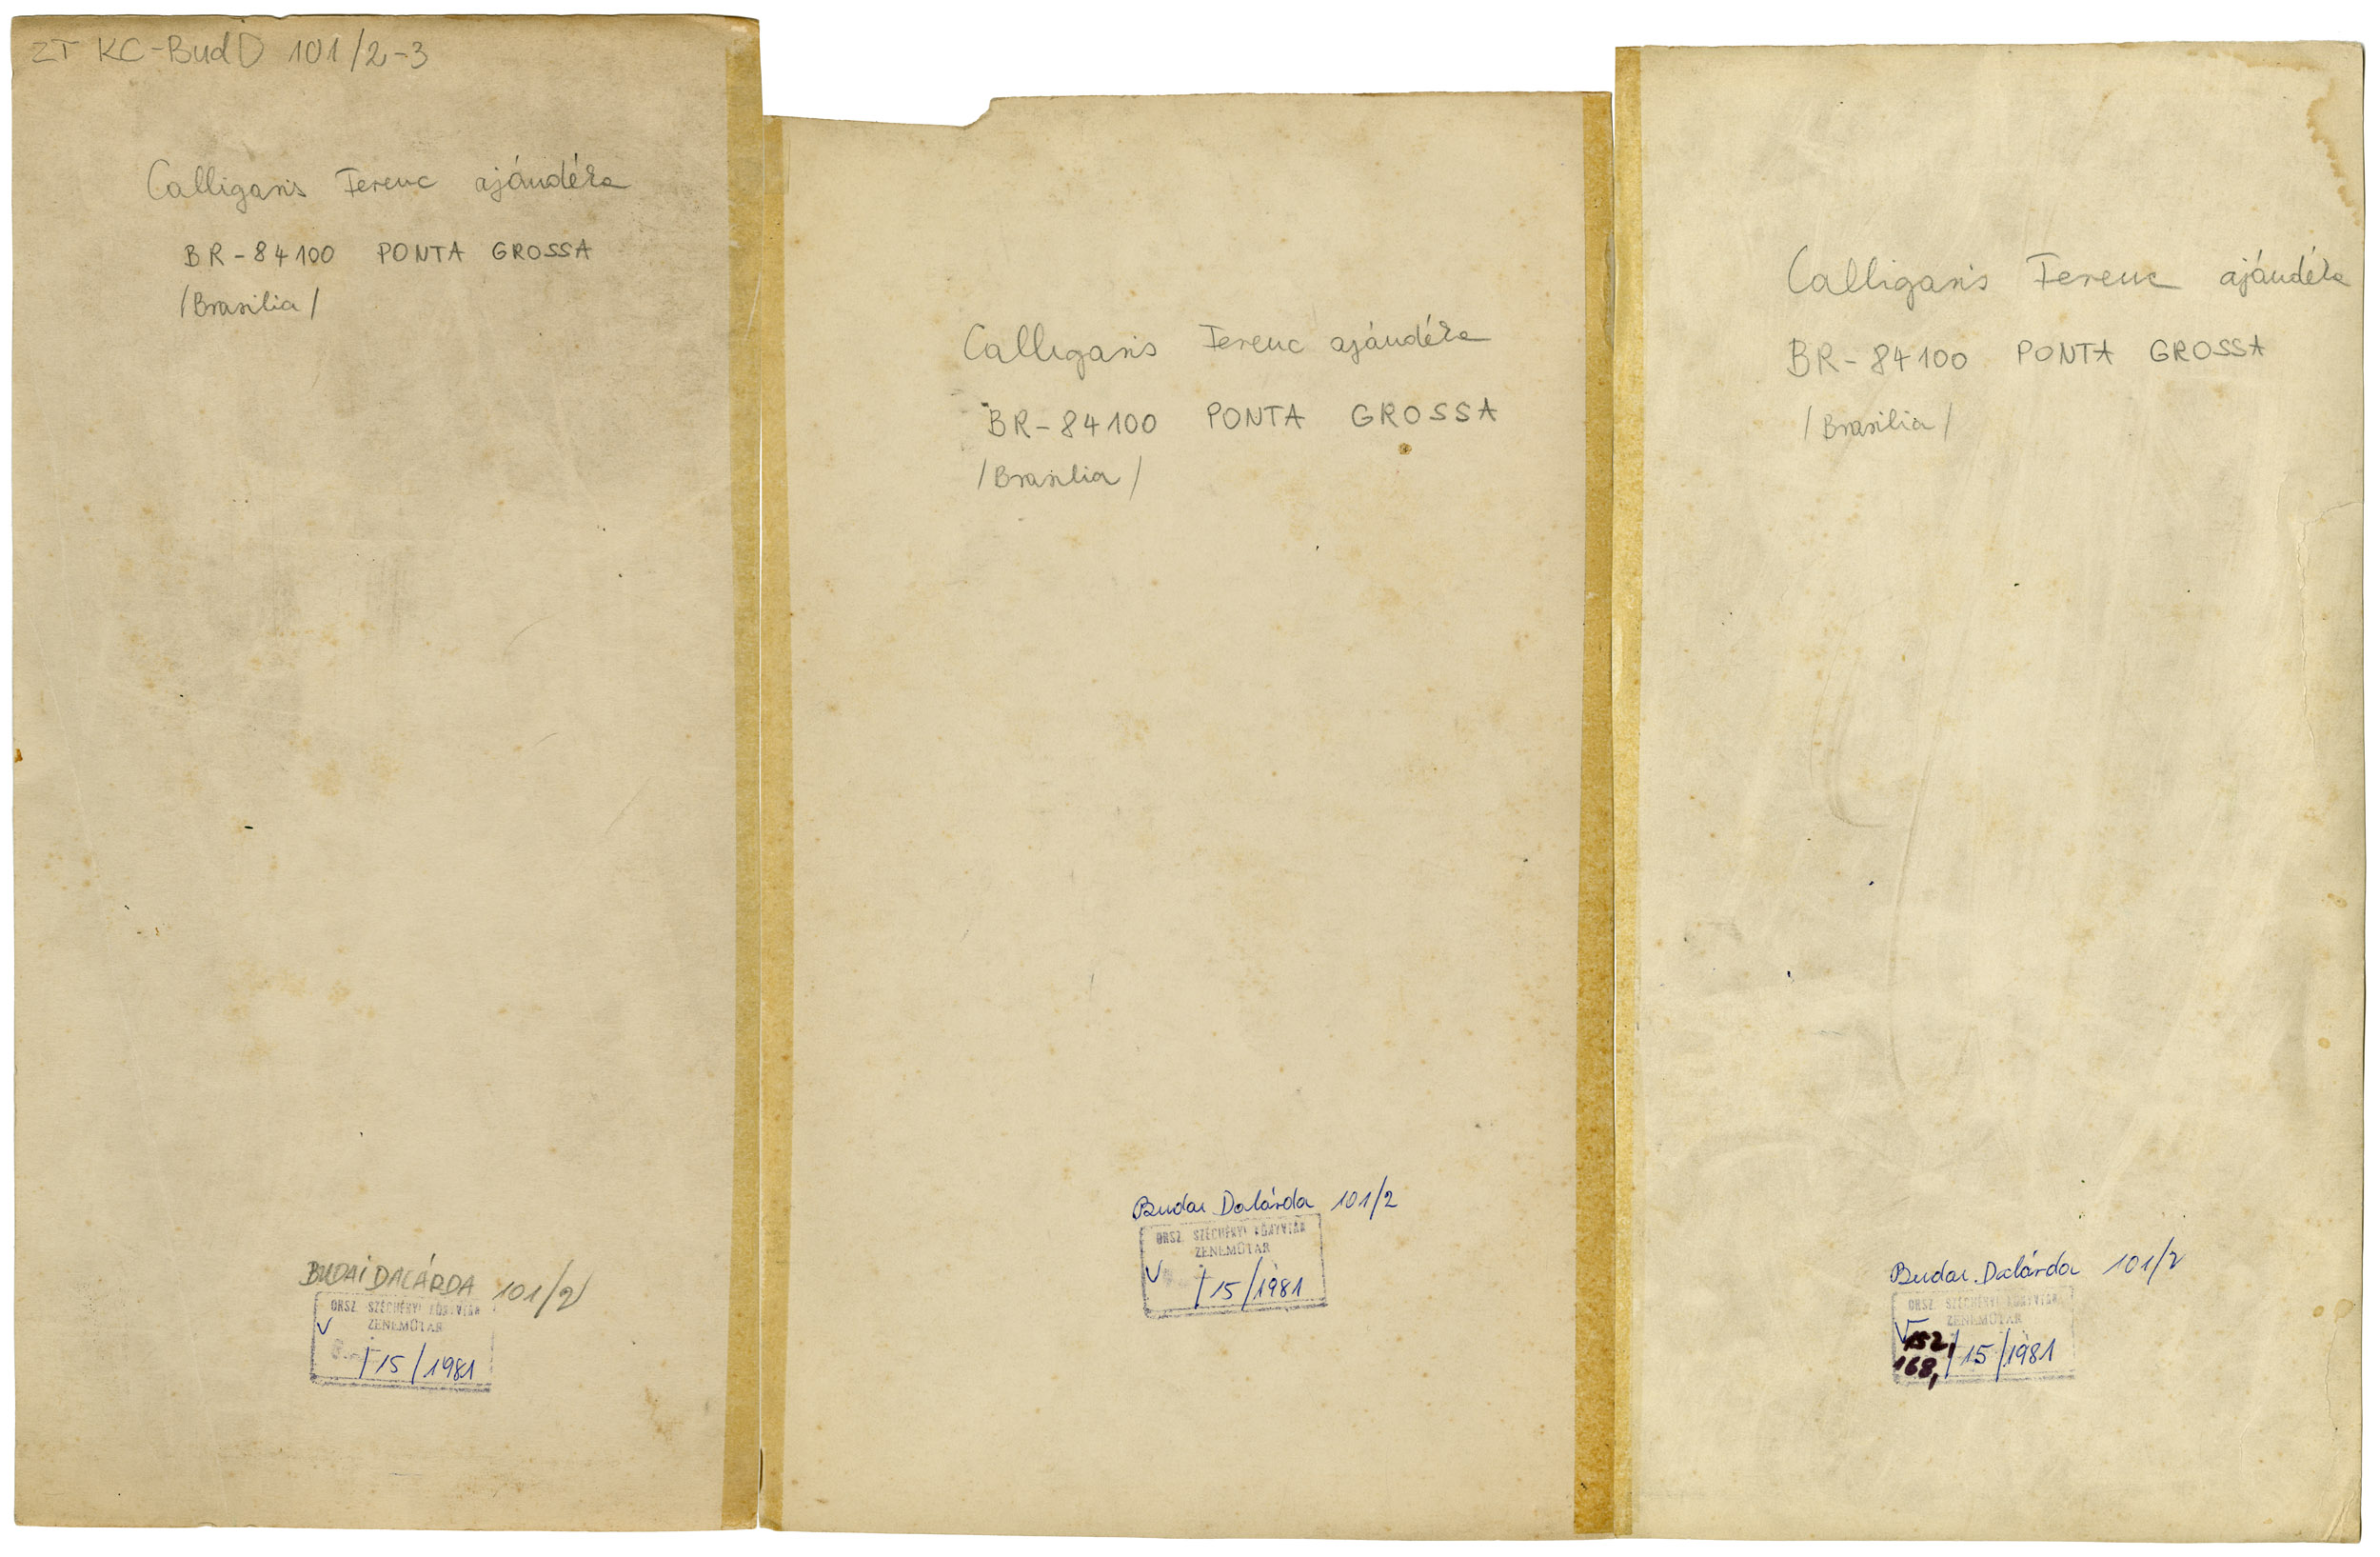 ZT KC-BudD 101/2-3
Calligaris Ferenc ajándéka
BR-84100 PONTA GROSSA
/Brasilia/
BUDAI DALÁRDA 101/2
ORSZ. SZÉCHÉNYI KÖNYVTÁR
ZENEMŰTÁR
/15/1981
Calligaris Ferenc ajándéka
BR-84100 PONTA GROSSA
/Brasilia/
Budai Dalárda 101/2
ORSZ. SZÉCHÉNYI KÖNYVTÁR
ZENEMŰTÁR
/15/1981
Calligaris Ferenc ajándéka
BR-84100 PONTA GROSSA
/Brasilia/
Budai Dalárda 101/2
ORSZ. SZÉCHÉNYI KÖNYVTÁR
ZENEMŰTÁR
152,
168, /15/1981